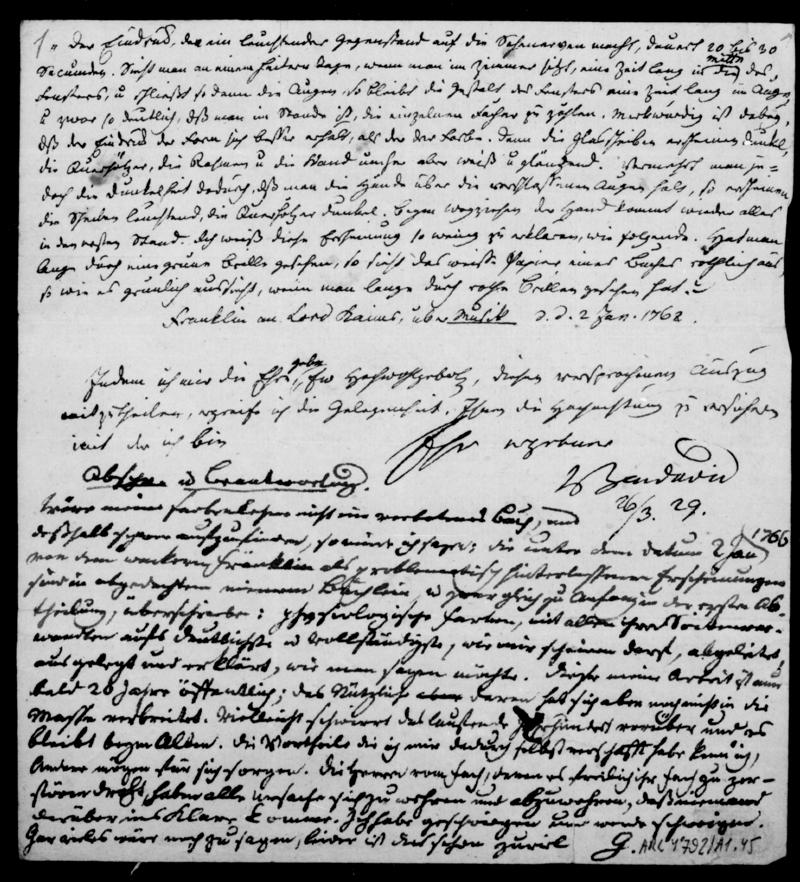 1. "Der Eindruck, den ein leuchtender Gegenstand auf die Sehnerven macht, dauert 20 bis 30
Secunden. Sieht man an einem heitern Tage, wenn man im Zimmer sitzt, eine Zeit lang in die Mitte des
Fensters, u schließt so denn die Augen, so bleibt die Gestalt des Fensters eine Zeit lang im Auge,
u zwar so deutlich, daß man im Stande ist, die einzelnen Fächer zu zählen. Merkwürdig ist dabey,
daß der Eindruck der Form sich besser erhält, als der der Farbe. Denn die Glasscheiben erscheinen dunkel,
die Querhölzer, die Rahmen u die Wand umher aber weiß u glänzend. Vermehrt man je=
doch die Dunkelheit dadurch, daß man die Hände über die verschlossenen Augen hält, so erscheinen
die Scheiben leuchtend, die Querhölzer dunkel. Beym wegziehen der Hand kommt wieder alles
in den ersten Stand. Ich weiß diese Erscheinung so wenig zu erklären, wie folgende. Hat man
lange durch eine grüne Brille gesehen, so sieht das weiße Papier eines Buches röthlich aus,
so wie es grünlich aussieht, wenn man lange durch rothe Brillen gesehen hat.
Franklin an Lord Kaims, über Musik d. d. 2 Jan. 1762.
Indem ich mir die Ehre gebe, Ew Hochwohlgeboh, diesen versprochenen Auszug
mitzutheilen, ergreife ich die Gelegenheit, Ihnen die Hochachtung zu versichern
mit der ich bin
Ihr ergebner
26/3. 29.
u Beantwortung.
Wäre meine Farbenlehre nicht ein verbotenes Buch, und
deßhalb schwer aufzufinden, so würde ich sagen: die unter dem Datum 2 Jan 1766
von dem wackern Franklin als problematisch hinterlassenen Erscheinungen
sind in abgedachtem meinem Büchlein, u zwar gleich zu Anfang in der ersten Ab=
theilung, überschrieben: physiologische Farben, mit allen ihren Sockenver=
wandten aufs deutlichste u vollständigste, wie mir scheinen darf, abgeleitet
ausgelegt und erklärt, wie man sagen möchte. Diese meine Arbeit ist nun
bald 20 Jahre öffentlich; das Nützliche daran hat sich aber noch nicht in die
Masse verbreitet. Vielleicht schwirrt das laufende Jahrhundert vorüber und es
bleibt beym Alten. Die Vortheile die ich mir dadurch selbst verschafft habe kenn ich,
Andere mögen für sich sorgen. Die Herren vom Fach, denen es freilich ihr Fach zu zer=
stören droht, haben alle Ursache sich zu wehren und abzuwehren, daß niemand
darüber ins Klare komme. Ich habe geschwiegen und werde schweigen.
Gar vieles wäre noch zu sagen, leider ist dies schon zuviel G.
ARC 4°792/A1.45